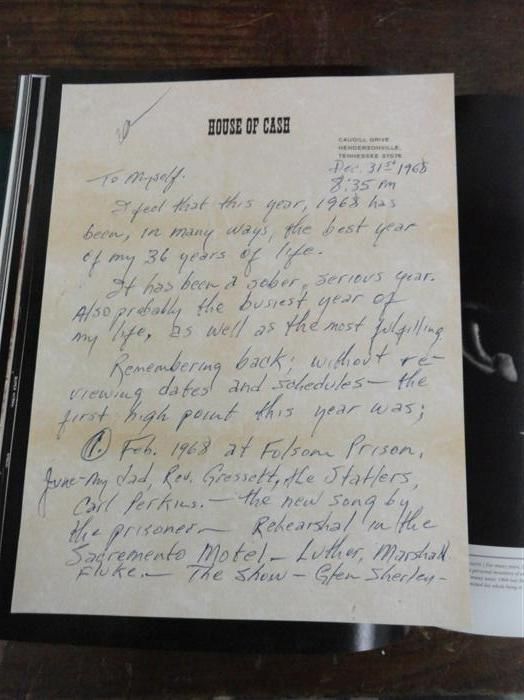 HOUSE OF CASH
CAUDILL DRIVE
HENDERSONVILLE,
TENNESSEE 37075
Dec. 31st 1968
8:35 PM
To Myself.
I feel that this year, 1968 has
been, in many ways, the best year
of my 36 years of life.
It has been a sober, serious year.
Also probably the busiest year of
my life, as well as the most fulfilling.
Remembering back; without re-
viewing dates and schedules - the
first high point this year was;
1. Feb. 1968 at Folsom Prison,
June - My dad, Rev. Gressett, the Statlers,
Carl Perkins. - the new song by
the prisoner - Rehearshal in the
Sacremento Motel - Luther, Marshall
Fluke. - The Show - Glen Sherley -